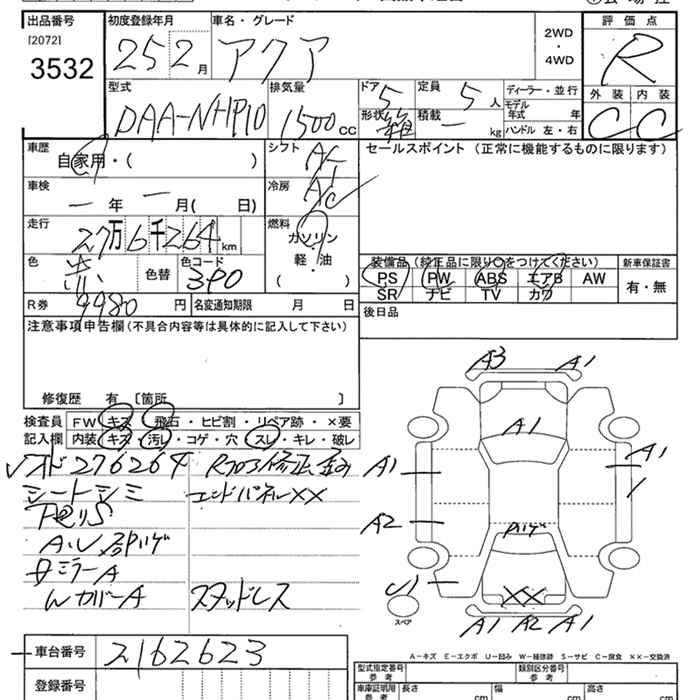 出品番号
[2072]
3532
初度登録年月
25 2月
車名・グレード
アクア
2WD
・
4WD
評価点
R
外装 内装
C C
型式
DAA-NHP10
排気量
1500cc
ドア 5
定員 5人
形状 箱
積載 ー kg
ディーラー・並行
モデル年式 年
ハンドル 左・右
車歴
自家用・( )
シフト
AT
セールスポイント (正常に機能するものに限ります)
車検
ー年ー月( 日)
冷房
A/C
走行
27万6千264km
燃料
ガソリン
軽・油
( )
色
色替
色コード
3P0
R券 9980円
名変通知期限 月 日
装備品 (純正品に限り○をつけてください)
PS PW ABS エアB AW
SR ナビ TV カワ
新車保証書
有・無
後日品
注意事項申告欄(不具合内容等は具体的に記入して下さい)
修復歴 有 〔箇所 〕
検査員
記入欄
FW キズ・飛石・ヒビ割・リペア跡・×要
内装 キズ・汚レ・コゲ・穴・スレ・キレ・破レ
276264
シートシミ
エンドパネル××
ミラーA
WカバーA
スタッドレス
A3 A1
A1
A1 A1
A2
ハゲ
××
A1 A2 A1
スペア
A-キズ E-エクボ U-凹み W-補修跡 S-サビ C-腐食 ××-交換済
車台番号
2162623
登録番号
型式指定番号
参考
類別区分番号
参考
車庫証明用
参考
長さ cm
幅 cm
高さ cm